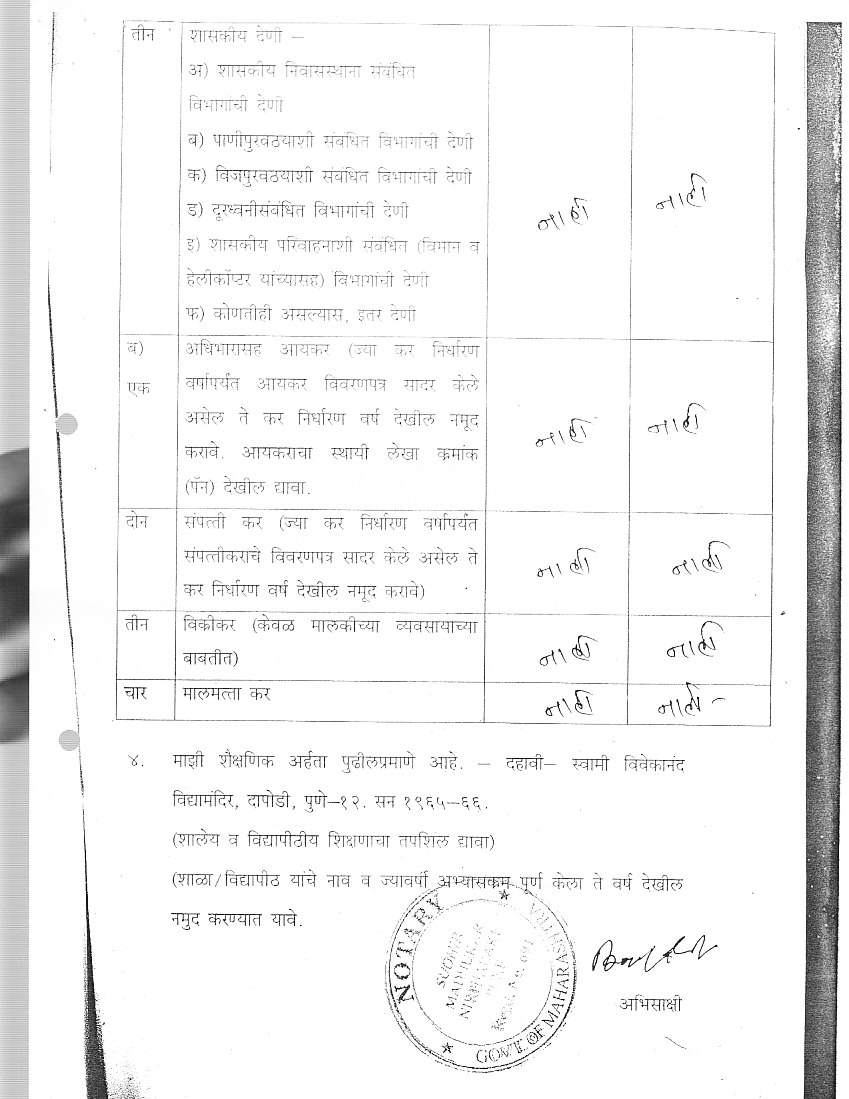 तीन शासकीय देणी –
अ) शासकीय निवासस्थाना संबंधित
विभागांची देणी
ब) पाणीपुरवठयाशी संबंधित विभागांची देणी
क) विजपुरवठयाशी संबंधित विभागांची देणी
ड) दूरध्वनीसंबंधित विभागांची देणी
नाही नाही
इ) शासकीय परिवाहनाशी संबंधित (विमान व
हेलीकॉप्टर यांच्यासह) विभागांची देणी
फ) कोणतीही असल्यास, इतर देणी
ब) अधिभारासह आयकर (ज्या कर निर्धारण
एक वर्षापर्यंत आयकर विवरणपत्र सादर केले
असेल ते कर निर्धारण वर्ष देखील नमूद
नाही नाही
करावे. आयकराचा स्थायी लेखा क्रमांक
(पॅन) देखील द्यावा.
दोन संपत्ती कर (ज्या कर निर्धारण वर्षापर्यंत
संपत्तीकराचे विवरणपत्र सादर केले असेल ते
नाही नाही
कर निर्धारण वर्ष देखील नमूद करावे)
तीन विकीकर (केवळ मालकीच्या व्यवसायाच्या
बाबतीत)
नाही नाही
चार मालमत्ता कर नाही नाही –
४. माझी शैक्षणिक अर्हता पुढीलप्रमाणे आहे. – दहावी– स्वामी विवेकानंद
विद्यामंदिर, दापोडी, पुणे–१२. सन १९६५–६६.
(शालेय व विद्यापीठीय शिक्षणाचा तपशिल द्यावा)
(शाळा/विद्यापीठ यांचे नाव व ज्यावर्षी अभ्यासकम पूर्ण केला ते वर्ष देखील
नमुद करण्यात यावे.
NOTARY
SUDHIR
MADHUKAR
GOVT. OF MAHARASHTRA
अभिसाक्षी